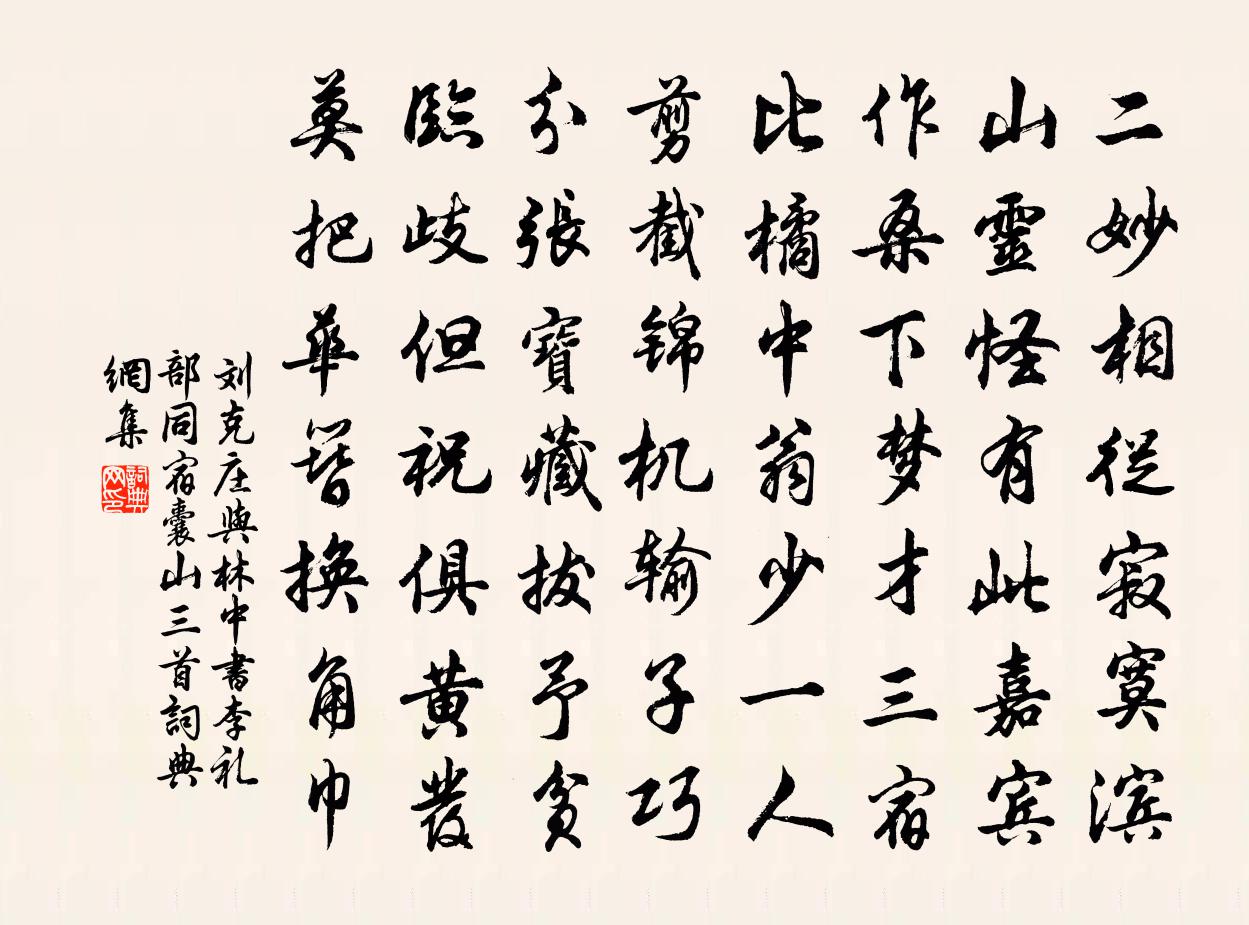 二妙相從寂寞滨
山靈怪有此嘉宾
作桑下梦才三宿
比橘中翁少一人
剪截锦机输子巧
分張寶藏拔予貧
臨歧但祝俱黄發
莫把華簪換角巾
刘克庄與林中書李礼
部同宿囊山三首詞典
網集
詞典
网印